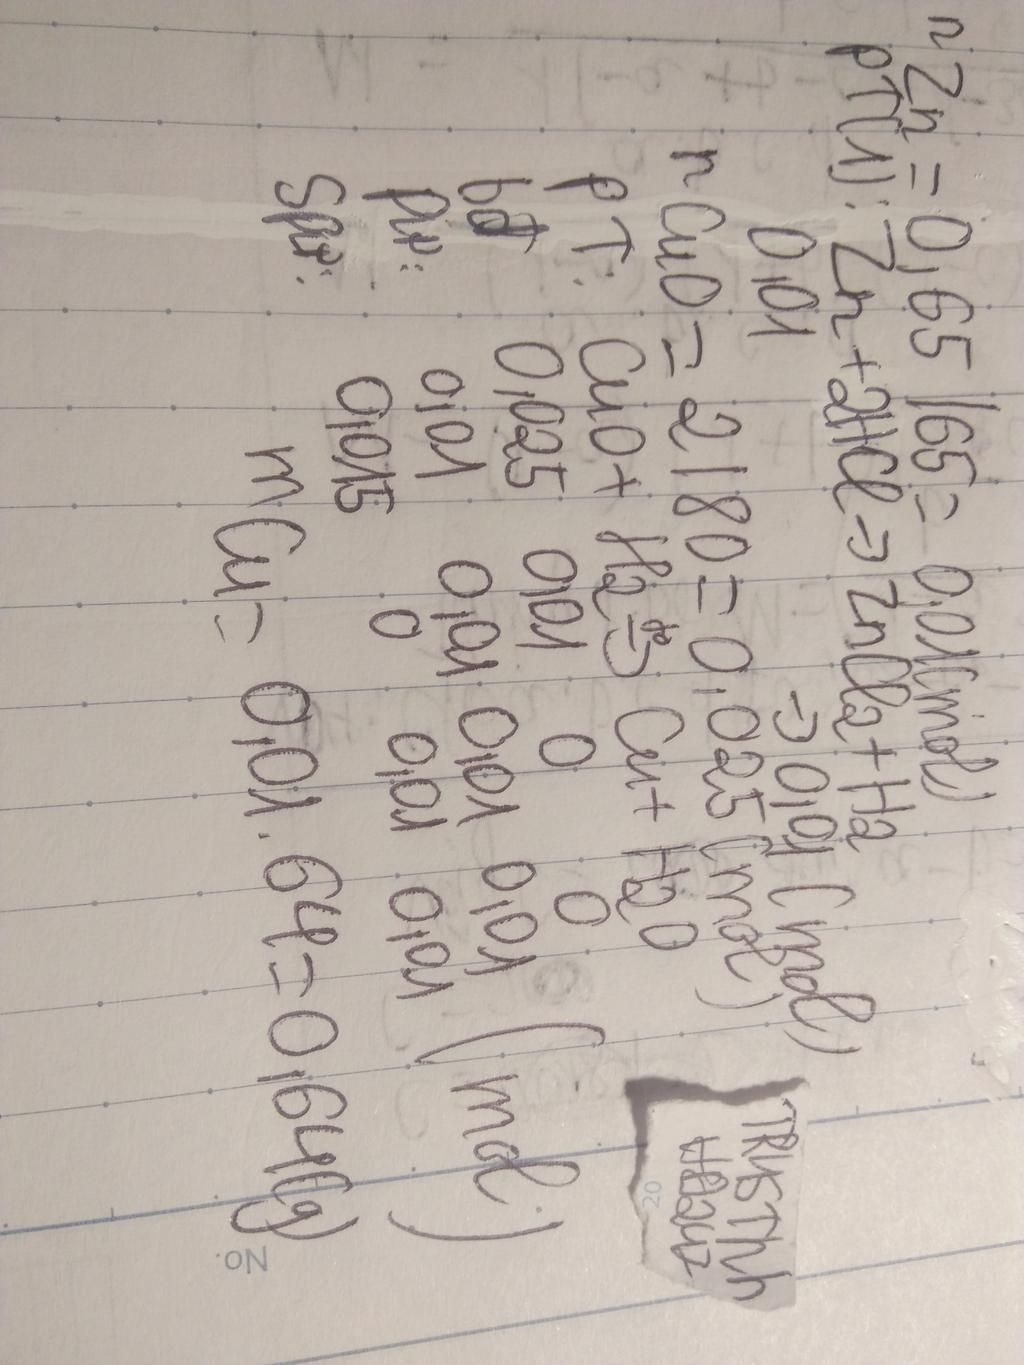 n Zn = 0,65 / 65 = 0,01 (mol)
PT(1): Zn + 2HCl => ZnCl2 + H2
0,01 => 0,01 (mol)
n CuO = 2 / 80 = 0,025 (mol)
PT: CuO + H2 => Cu + H2O
bđ 0,025 0,01 0 0
pứ: 0,01 0,01 0,01 0,01 (mol)
Spứ: 0,015 0 0,01 0,01
m Cu = 0,01 . 64 = 0,64 (g)
20
No.